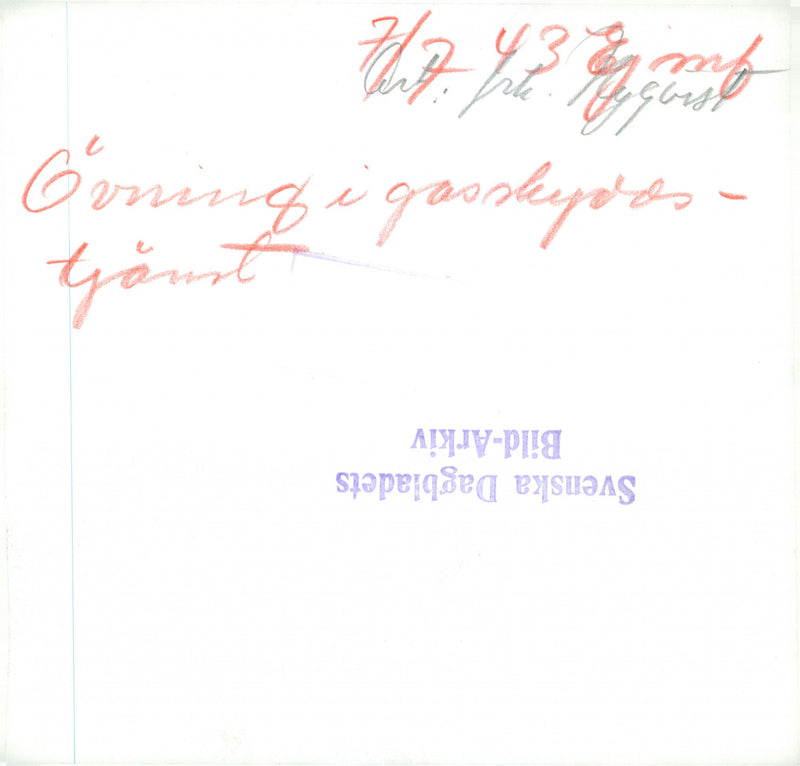 7/7 43 Ej mf
Art: frk. Nyqvist
Övning i gasskydds-
tjänst
Svenska Dagbladets
Bild-Arkiv